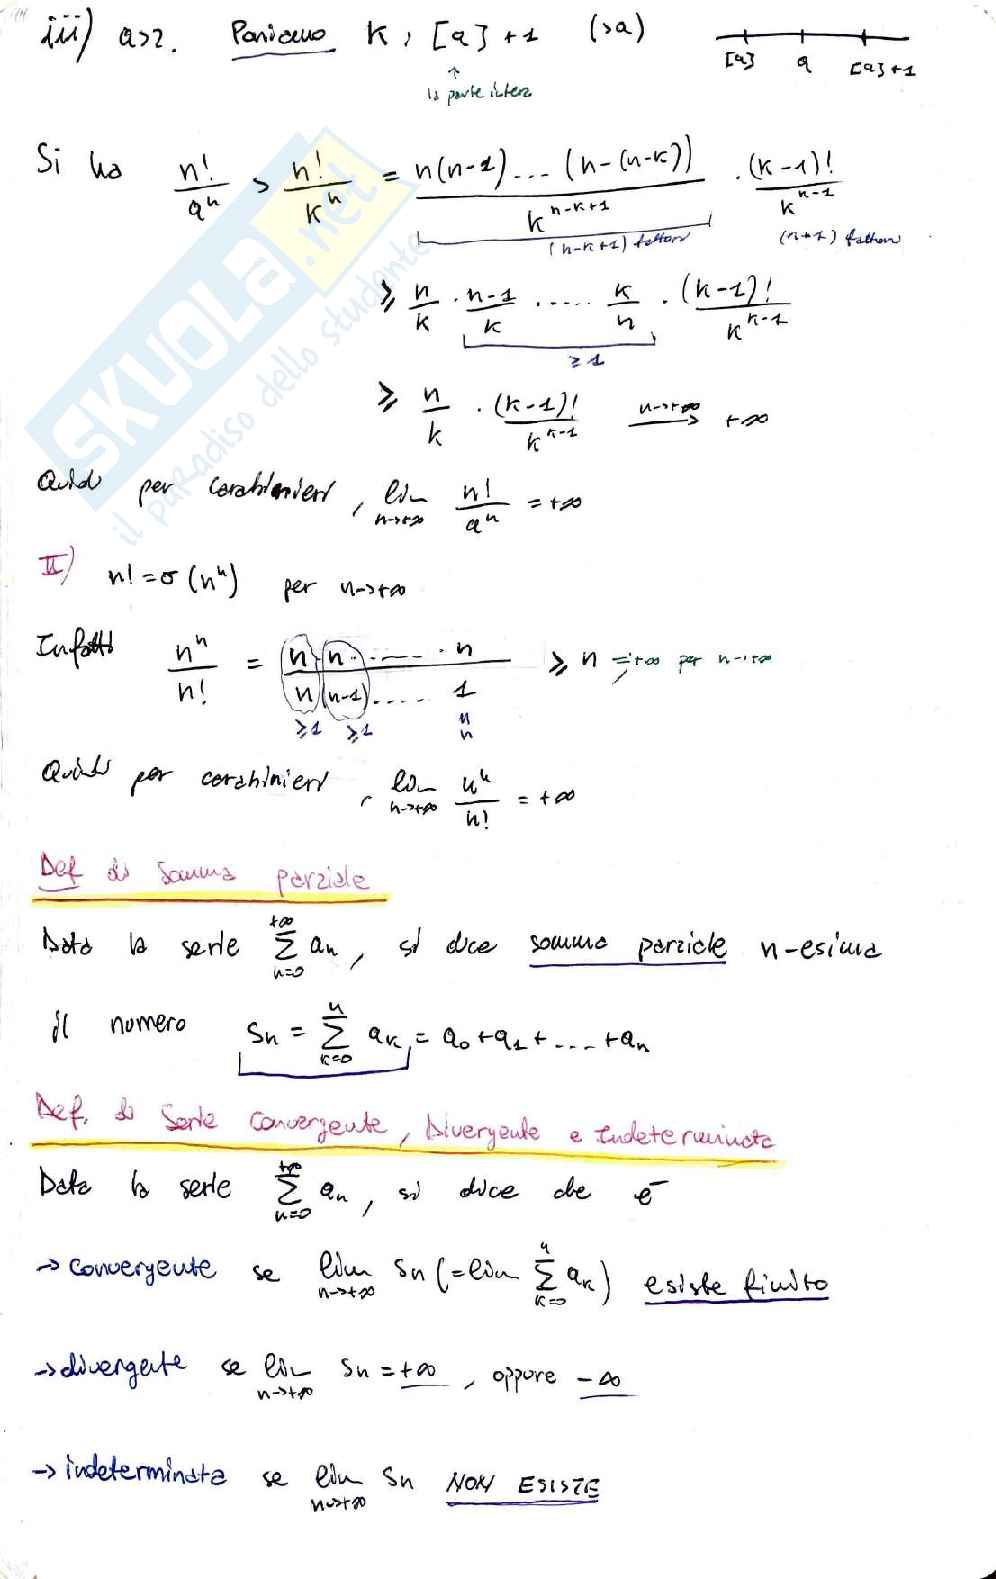 iii) a>2. Poniamo K = [a] + 1 (>a) [a] a [a]+1
↑
la parte intera
Si ha n!/aⁿ > n!/Kⁿ = n(n-1)...(n-(n-K))/K^(n-K+1) · (K-1)!/K^(K-1)
(n-K+1) fattori (K-1) fattori
≥ n/K · n-1/K ..... K/K · (K-1)!/K^(K-1)
≥ 1
≥ n/K · (K-1)!/K^(K-1) n→+∞ +∞
Quindi per carabinieri, lim n→+∞ n!/aⁿ = +∞
II) n! = o(nⁿ) per n→+∞
Infatti nⁿ/n! = n·n·.....·n / n(n-1).....1 ≥ n =+∞ per n→+∞
≥1 ≥1 n n
Quindi per carabinieri, lim n→+∞ nⁿ/n! = +∞
Def di somma parziale
Data la serie +∞ Σ n=0 aₙ, si dice somma parziale n-esima
il numero Sₙ = n Σ K=0 a_K = a₀+a₁+....+aₙ
Def. di Serie Convergente, Divergente e Indeterminata
Data la serie +∞ Σ n=0 aₙ, si dice che è
→ convergente se lim n→+∞ Sₙ (=lim n Σ K=0 a_K) esiste finito
→ divergente se lim n→+∞ Sₙ = +∞, oppure -∞
→ indeterminata se lim n→+∞ Sₙ NON ESISTE
SKUOLA.net
il paradiso dello studente